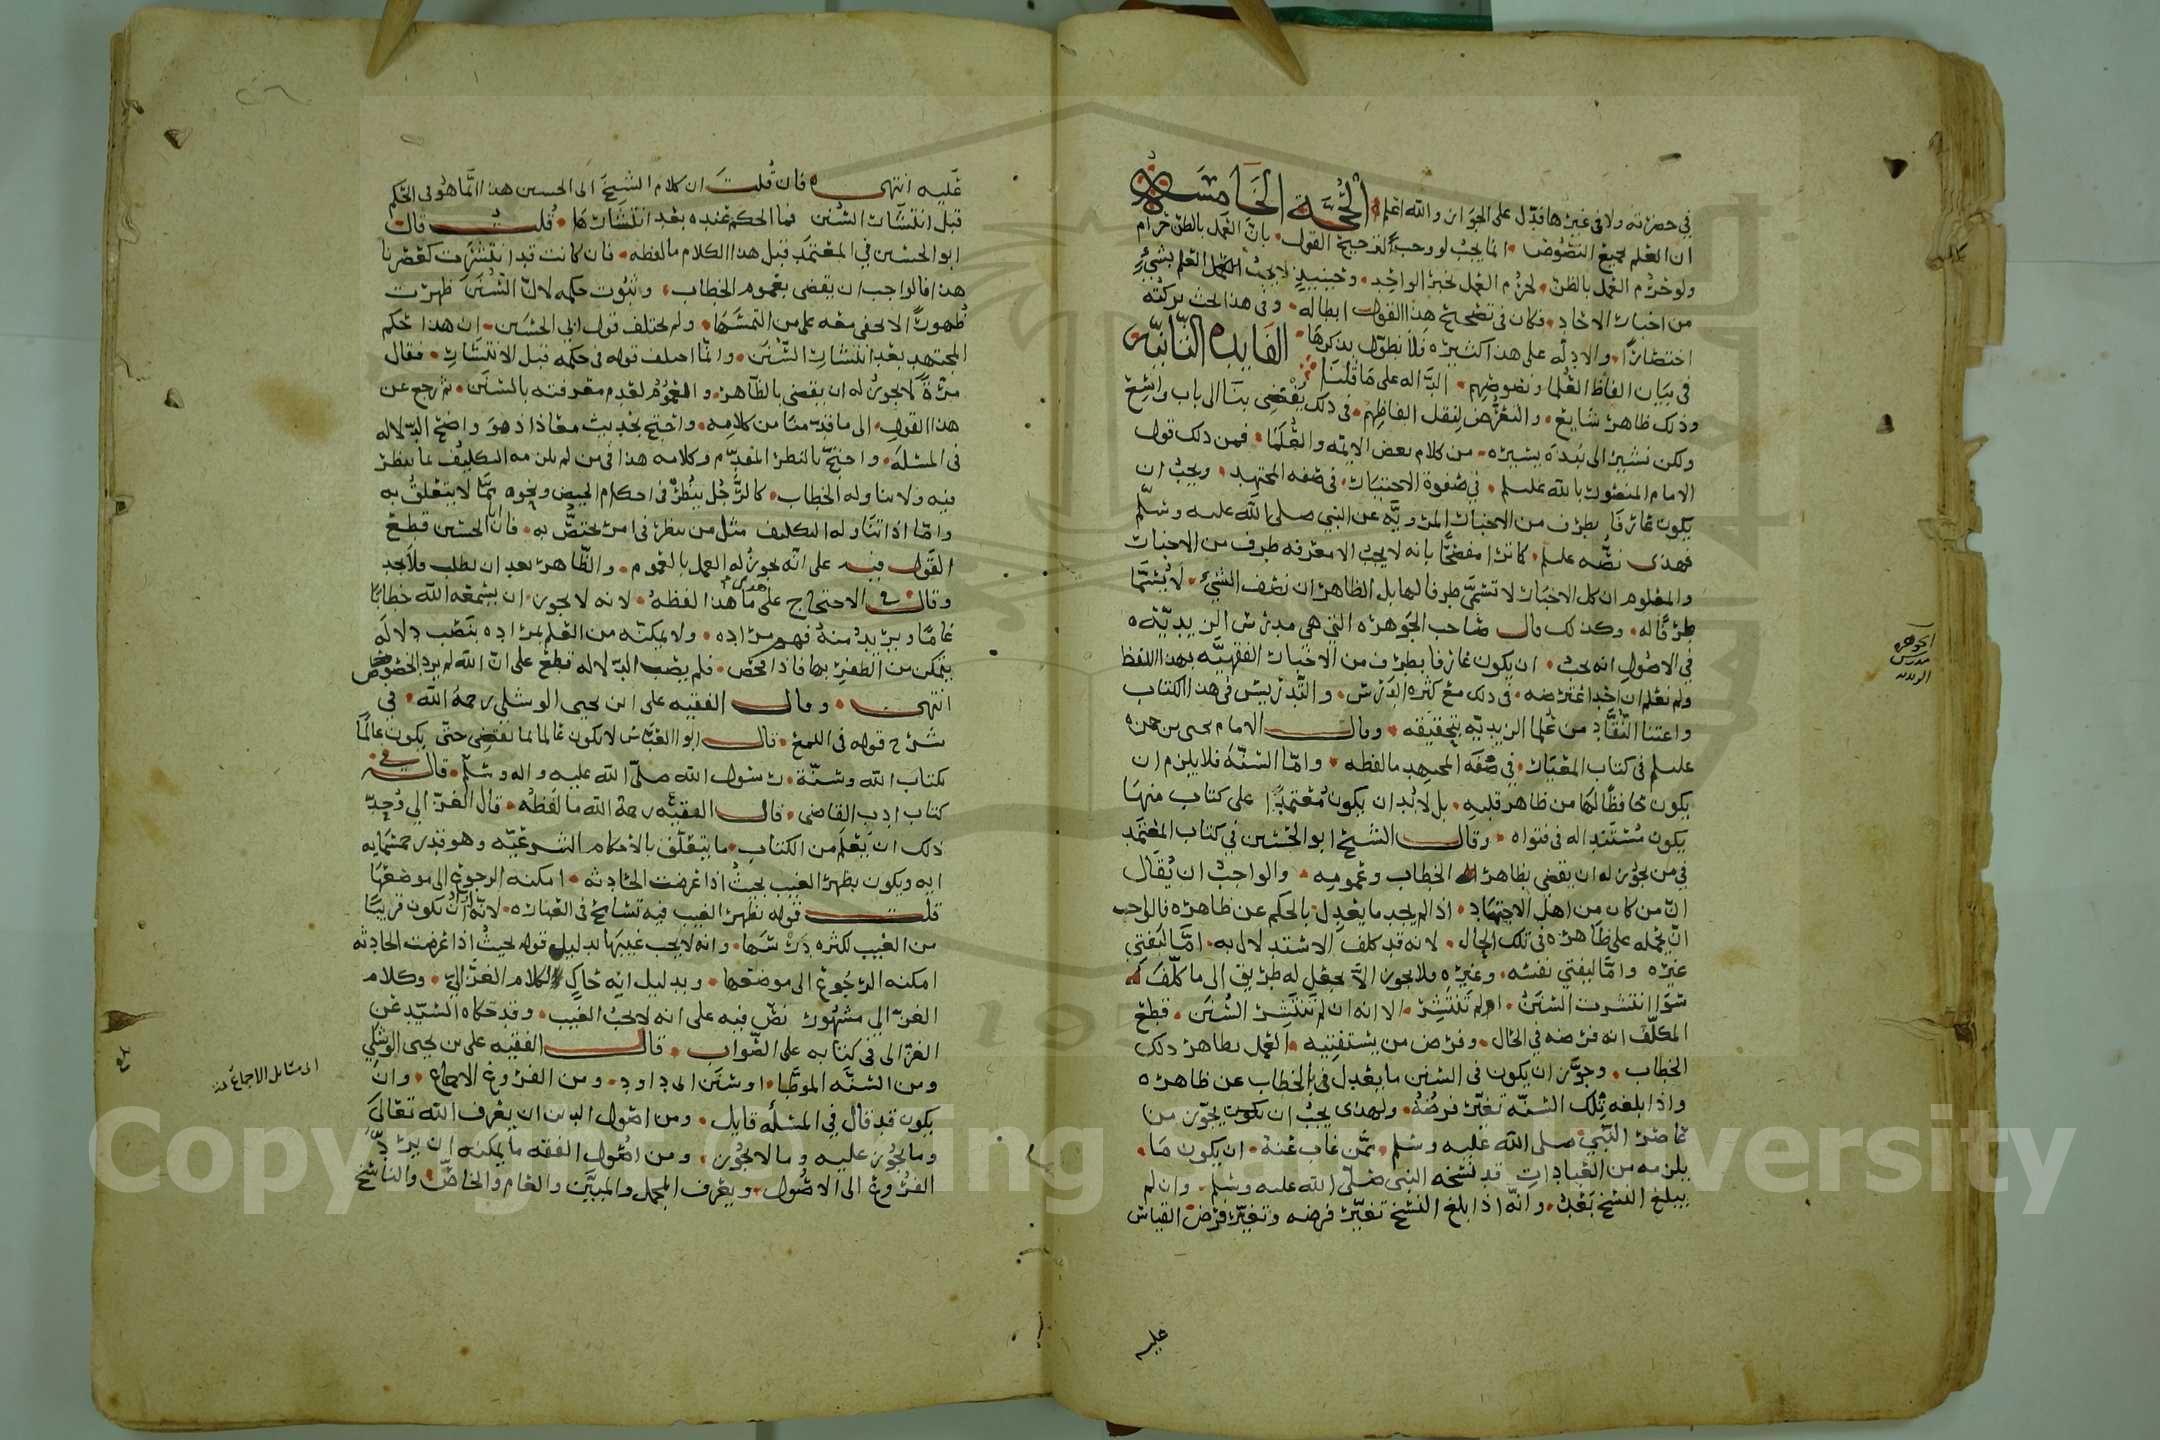 في حضرته ولا في غيرها فدل على الجواز والله اعلم الحجة الخامسة
ان العلم بجميع النصوص انما يجب لو وجب الترجيح القول بان العمل بالظن حرام
ولو حرم العمل بالظن لحرم العمل بخبر الواحد وحينيذ لا يجب العلم بشيء
من اخبار الاحاد فكان في تصحيح هذا القول ابطاله وفي هذا البحث تركته
اختصارا والادله على هذا كثيره فلا نطول بذكرها الفايده الثانيه
في بيان الفاظ العلما ونصوصهم الداله على ما قلنا
وذلك ظاهر شايع والتعرض لنقل الفاظهم في ذلك يفضي بنا الى باب واسع
ولكن نشير الى نبذه يسيره من كلام بعض الايمه والعلما فمن ذلك قول
الامام المنصور بالله عليلم في صفوة الاختيار في صفه المجتهد ويجب ان
يكون عارفا بطرف من الاخبار المرويه عن النبي صلى الله عليه وسلم
فهذى نصه عليلم كما ترا مفصحا بانه لا يجب الا معرفه طرف من الاخبار
والمعلوم ان كل الاخبار لا تسمى طرفا لها بل الظاهر ان نصف الشيء لا يسما
طرفا له وكذلك قال صاحب الجوهره التي هي مدرس الزيديه
في الاصول انه يجب ان يكون عارفا بطرف من الاخبار الفقهيه بهذا اللفظ
ولم نعلم ان احدا اعترضه في ذلك مع كثره الدرس والتدريس في هذا الكتاب
واعتنا النقاد من علما الزيديه بتحقيقه وقال الامام يحيى بن حمزه
عليلم في كتاب المعيار في صفه المجتهد ما لفظه واما السنه فلا يلزم ان
يكون حافظا لها من ظاهر قلبه بل لابد ان يكون معتمدا على كتاب منها
يكون مستندا له في فتواه وقال الشيخ ابو الحسين في كتاب المعتمد
في من يجوز له ان يقضي بظاهر الخطاب وعمومه والواجب ان يقال
ان من كان من اهل الاجتهاد اذا لم يجد ما يعدل بالحكم عن ظاهره فالواجب
ان يحمله على ظاهره في تلك الحال لانه قد كلف الاستدلال به اما ليفتي
غيره واما ليفتي نفسه وغيره فلا يجوز الا يجعل له طريق الى ما كلفه
سوا انتشرت السنن او لم تنتشر الا انه ان لم تنتشر السنن قطع
المكلف انه فرضه في الحال وفرض من يستفتيه العمل بظاهر ذلك
الخطاب وجوز ان يكون في السنن ما يعدل في الخطاب عن ظاهره
واذا بلغه تلك السنه تغير فرضه ولهذى يجب ان يكون يجوز من
عاصر النبي صلى الله عليه وسلم ممن غاب عنه ان يكون ما
يلزمه من العبادات قد نسخه النبي صلى الله عليه وسلم وان لم
يبلغ النسخ بعد وانه اذا بلغ النسخ تغير فرضه وتغير فرض القياس
عليه
الجوهره
مدرس
الزيديه
عليه انتهى فان قلت ان كلام الشيخ ابى الحسين هذا انما هو في الحكم
قبل انتشار السنن فما الحكم عنده بعد انتشارها قلت قال
ابو الحسين في المعتمد قبل هذا الكلام ما لفظه فان كانت قد انتشرت كعصرنا
هذا فالواجب ان يقضى بعموم الخطاب وثبوت حكمه لان السنن ظهرت
ظهورا لا تخفى معه على من التمسها ولم يختلف قول ابي الحسين ان هذا حكم
المجتهد بعد انتشار السنن وانما اختلف قوله في حكمه قبل الانتشار فقال
مرة لا يجوز له ان يقضى بالظاهر والعموم لعدم معرفته بالسنن ثم رجع عن
هذا القول الى ما قدمنا من كلامه واحتج بحديث معاذ اذ هو واضح الدلاله
في المسئله واحتج بالنظر المقدم وكلامه هذا في من لم يلزمه التكليف لما ينظر
فيه ولا يتناوله الخطاب كالرجل ينظر في احكام الحيض ونحوه مما لا يتعلق به
واما اذا تناوله التكليف مثل من ينظر في امر يختص به فان ابا الحسين قطع
القول فيه على انه يجوز له العمل بالعموم والظاهر بعد ان يطلب فلا يجد
وقال في الاحتجاج على هذى ما هذا لفظه لانه لا يجوز ان يسمعه الله خطابا
عاما ويريد منه فهم مراده ولا يمكنه من العلم بمراده بنصب دلاله
يتمكن من الظفر بها فاذا فحص فلم يصب الدلاله قطع على ان الله لم يرد الخصوص
انتهى وقال الفقيه على ابن يحيى الوشلي رحمه الله في
شرح قوله في اللمع قال ابو العباس لا يكون عالما بما يقضى حتى يكون عالما
بكتاب الله وسنة رسول الله صلى الله عليه واله وسلم قال في
كتاب ادب القاضى قال الفقيه رحمة الله ما لفظه قال الغزالي وحد
ذلك ان يعلم من الكتاب ما يتعلق بالاحكام الشرعيه وهو قدر خمسمايه
ايه ويكون بظهر الغيب بحيث اذا عرضت الحادثه امكنه الرجوع الى موضعها
قلت قوله بظهر الغيب فيه تسامح في العباره لانه اراد ان يكون قريبا
من الغيب لكثره درسها وانه لا يجب غيبها بدليل قوله بحيث اذا عرضت الحادثه
امكنه الرجوع الى موضعها وبدليل انه حاك لكلام الغزالي وكلام
الغزالي مشهور نص فيه على انه لا يجب الغيب وقد حكاه السيد عن
الغزالى في كتابه على الصواب قال الفقيه على بن يحيى الوشلي
ومن السنه الموطا او سنن ابى داود ومن الفروع الاجماع وان
يكون قد قال في المسئله قايل ومن اصول الدين ان يعرف الله تعالى
وما يجوز عليه وما لا يجوز ومن اصول الفقه ما يمكنه ان يرد
الفروع الى الاصول ويعرف المجمل والمبين والعام والخاص والناسخ
اى مسايل الاجماع تمت
Copyright © King Saud University